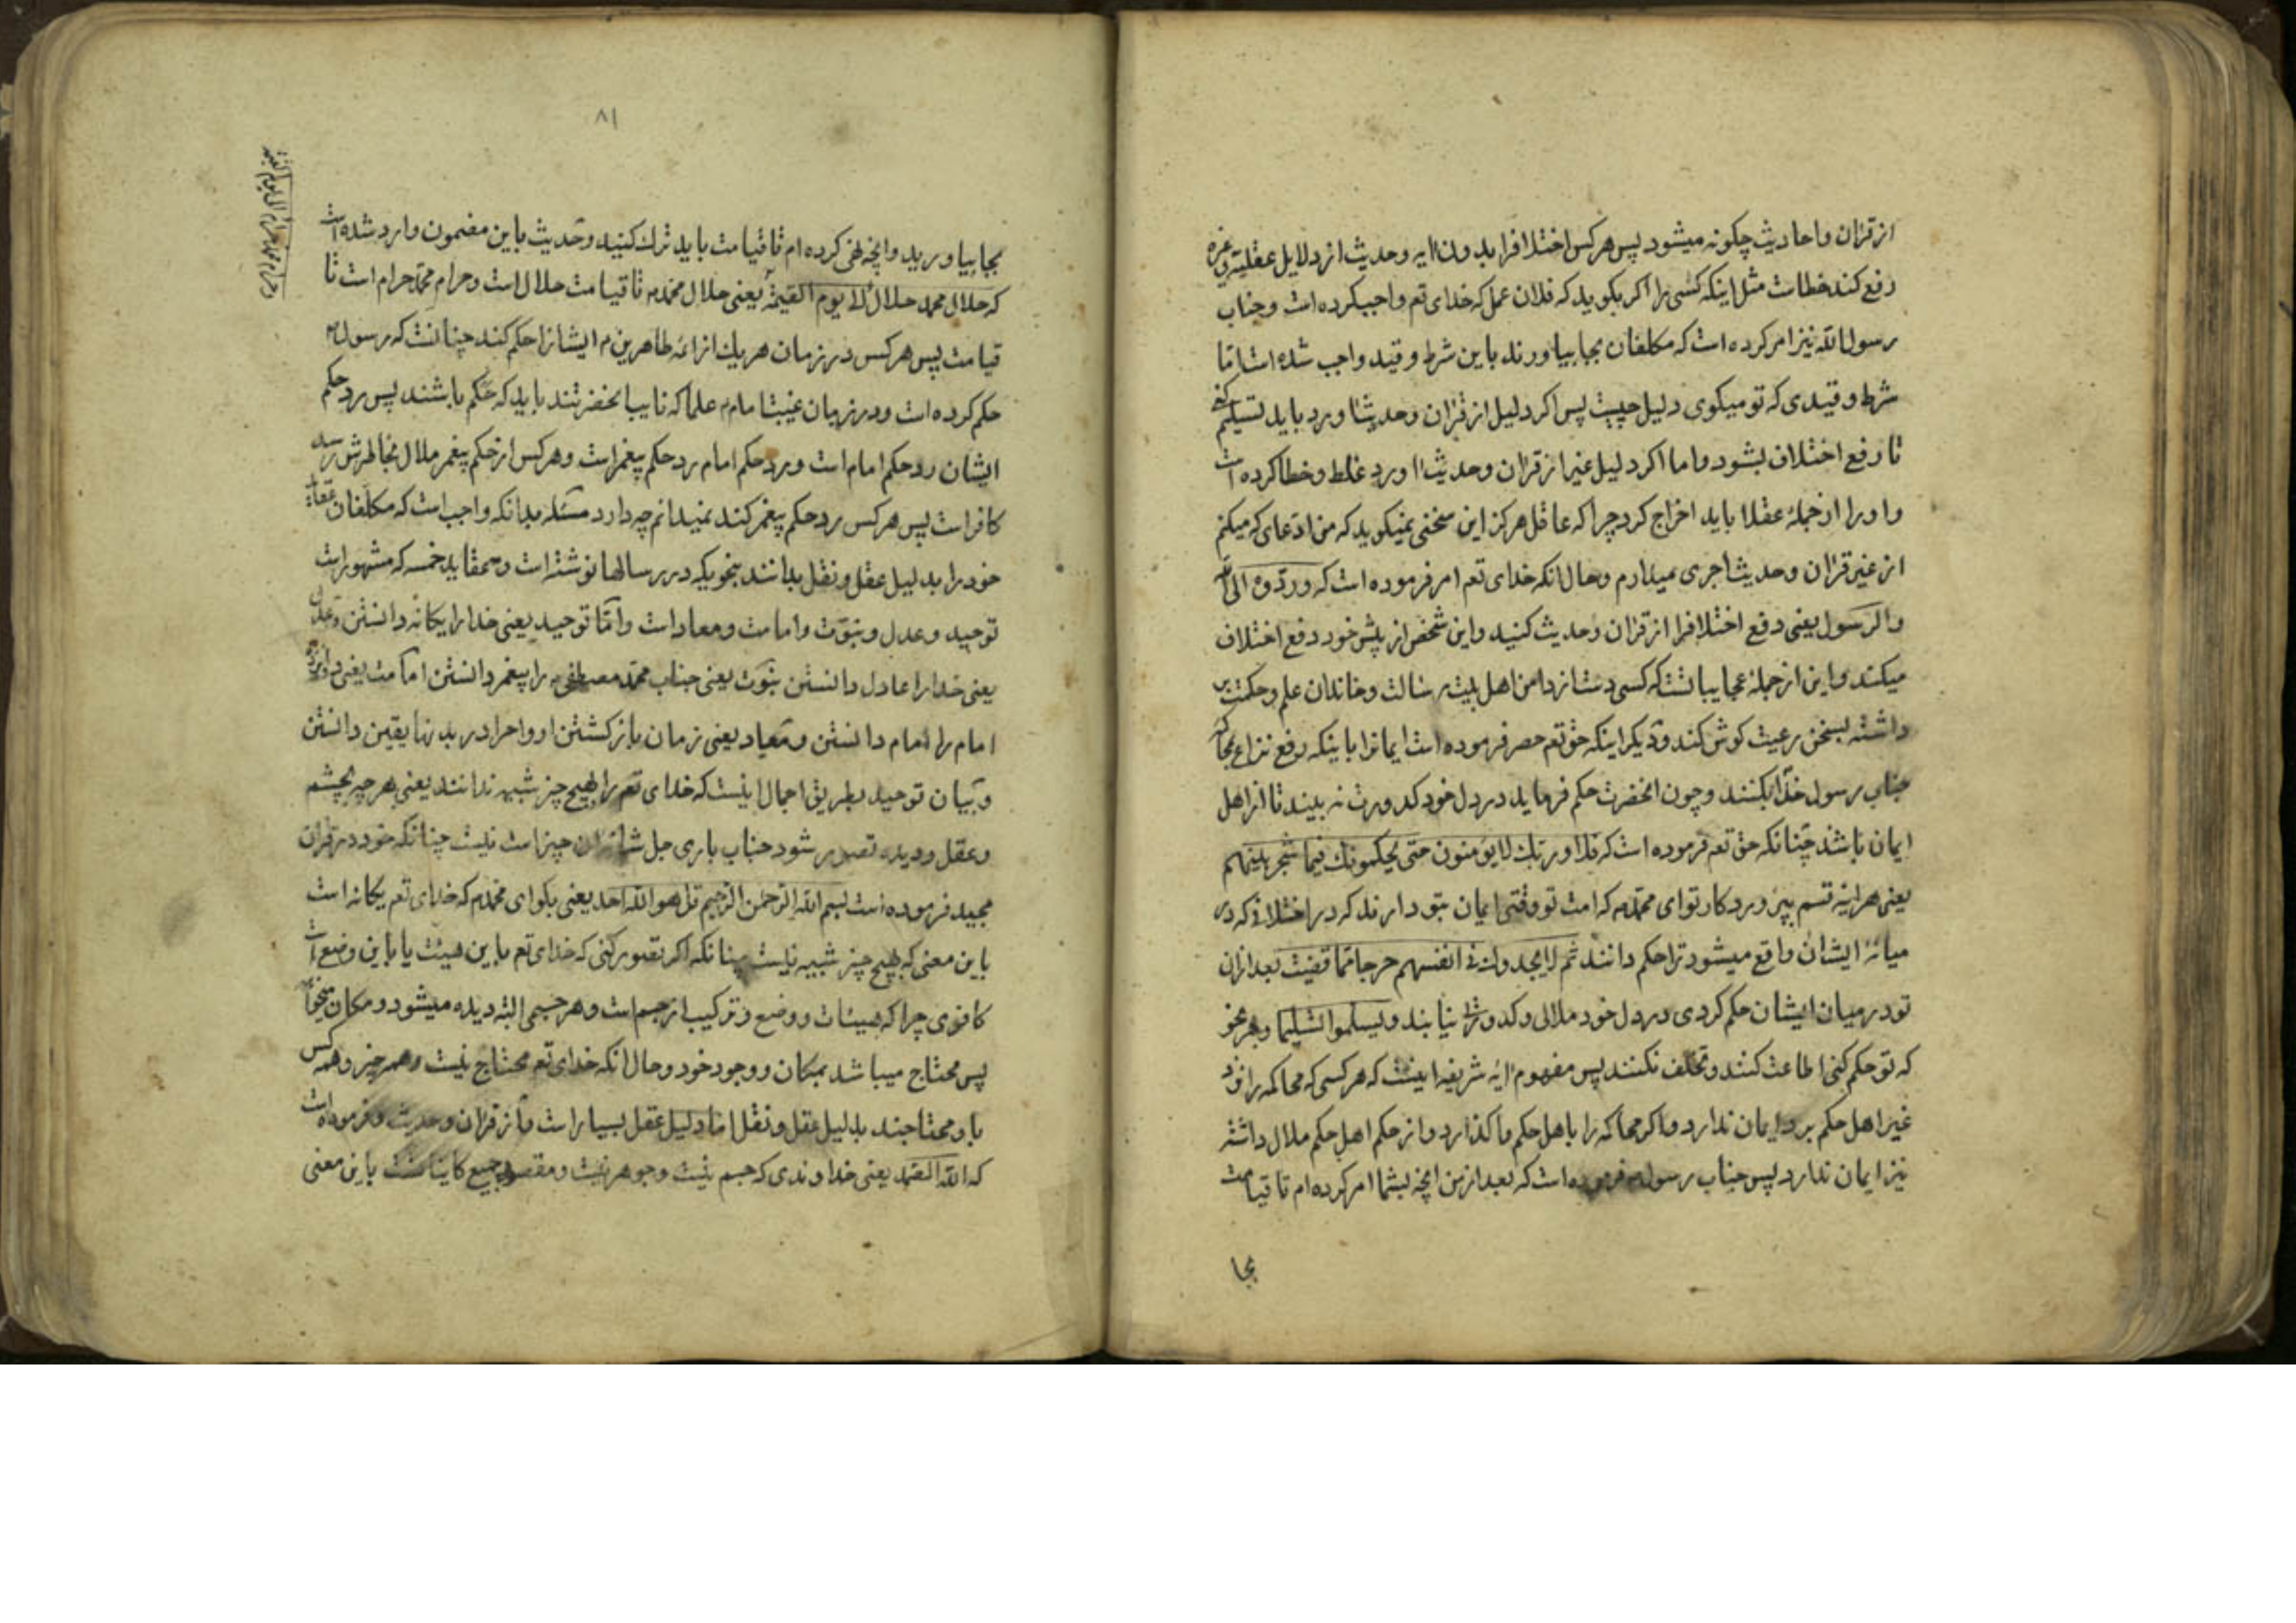 از قرآن و احادیث چگونه میشود پس هرکس اختلافرا بدون آیه و حدیث از دلایل عقلیه
رفع کند خطاست مثل اینکه کسی را اکر بکوید که فلان عمل که خدای تع واجب کرده است و جناب
رسول الله نیز امر کرده است که مکلفان بجا بیاورند باین شرط و قید واجب شده است اما
شرط و قیدی که تو میکوی دلیل چیست پس اکر دلیل از قرآن و حدیث آورد باید تسلیم
تا رفع اختلاف بشود و اما اکر دلیل غیر از قرآن و حدیث آورد غلط و خطا کرده است
و او را از جمله عقلا باید اخراج کرد چرا که عاقل هرکز این سخنی نمیکوید که من ادعای که میکنم
از غیر قرآن و حدیث اجری میدارم و حال آنکه خدای تع امر فرموده است که وردّوه الی الله
والرّسول یعنی دفع اختلافرا از قرآن و حدیث کنید و این شخص از پیش خود دفع اختلاف
میکند و این از جمله عجایباتست که کسی دست از دامن اهل بیت رسالت و خاندان علم و حکمت بر
داشته بسخن رعیت کوش کند و دیکر اینکه حق تع حصر فرموده است ایمانرا باینکه رفع نزاع
جناب رسول خدا بکنند و چون آنحضرت حکم فرماید در دل خود کدورت نه بیند تا از اهل
ایمان باشد چنانکه حق تع فرموده است که فلا وربّك لایؤمنون حتی یحکمونك فیما شجر بینهم
یعنی هرآینه قسم بپروردکار تو ای محمد که امت تو وقتی ایمان بتو دارند که در اختلافی که در
میانهٔ ایشان واقع میشود ترا حکم دانند ثم لایجدوا فی انفسهم حرجا مما قضیت بعد ازان
تو در میان ایشان حکم کردی در دل خود ملالی و کدورت نیابند ویسلموا تسلیما و بهر نحو
که تو حکم کنی اطاعت کنند و تخلف نکنند پس مفهوم آیه شریفه اینست که هر کسی که محاکمه را نزد
غیر اهل حکم برد ایمان ندارد و اکر محاکمه را باهل حکم واکذارد و از حکم اهل حکم ملال داشته
نیز ایمان ندارد پس جناب رسول فرموده است که بعد از من آنچه بشما امر کرده ام تا قیامت
بجا
۸۱
بجا بیاورید و آنچه نهی کرده ام تا قیامت باید ترك کنید و حدیث باین مضمون وارد شده است
که حلال محمد حلال الی یوم القیمة یعنی حلال محمد تا قیامت حلال است و حرام محمد حرام است تا
قیامت پس هرکس در زمان هریك از ائمه طاهرین ایشانرا حکم کند چنانست که رسول
حکم کرده است و در زمان غیبت امام علما که نایب آنحضرتند باید که حکم باشند پس رد حکم
ایشان رد حکم امام است و رد حکم امام رد حکم پیغمبر است و هرکس از حکم پیغمبر ملال بخاطرش رسد
کافر است پس هرکس رد حکم پیغمبر کند نمیدانم چه دارد مسئله بدانکه واجب است که مکلفان عقاید
خود را بدلیل عقل و نقل بدانند بنحویکه در رسالها نوشته است و عقاید خمسه که مشهور است
توحید و عدل و نبوّت و امامت و معاد است و امّا توحید یعنی خدا را یکانه دانستن وعدل
یعنی خدا را عادل دانستن نبوّت یعنی جناب محمد مصطفی را پیغمبر دانستن امامت یعنی دوازده
امام را امام دانستن و معاد یعنی زمان باز کشتن ارواح را در بدنها یقین دانستن
و بیان توحید بطریق اجمال اینست که خدای تع را بهیچ چیز شبیه ندانند یعنی هر چیز بچشم
و عقل و دیده تصور شود جناب باری جل شانه ان چیز است نیست چنانکه خود در قرآن
مجید فرموده است بسم الله الرّحمن الرّحیم قل هو الله احد یعنی بکو ای محمد که خدای تع یکانه است
باین معنی که بهیچ چیز شبیه نیست چنانکه اکر تصور کنی که خدای تع باین هیئت یا باین وضع است
کافری چرا که هیئات و وضع و ترکیب از جسم است و هر جسمی البته دیده میشود و مکان میخواهد
پس محتاج میباشد بمکان و وجود خود و حال آنکه خدای تع محتاج نیست و همه چیز و همه کس
باو محتاجند بدلیل عقل و نقل اما دلیل عقل بسیار است و از قرآن و حدیث و فرموده است
که الله الصّمد یعنی خداوندی که جسم نیست و جوهر نیست و مقصود جمیع کاینات است باین معنی